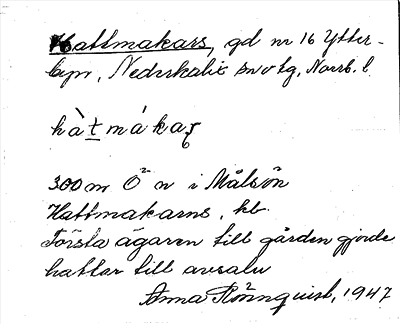 Hattmakars, gd nr 16 Ytter-
byn, Nederkalix snvtg, Norrb. l.
hàt̲mákaʂ
300 m Ö² n i Målsön
Hattmakarns, kb.
Första ägaren till gården gjorde
hattar till avsalu
Anna Rönnquist, 1947